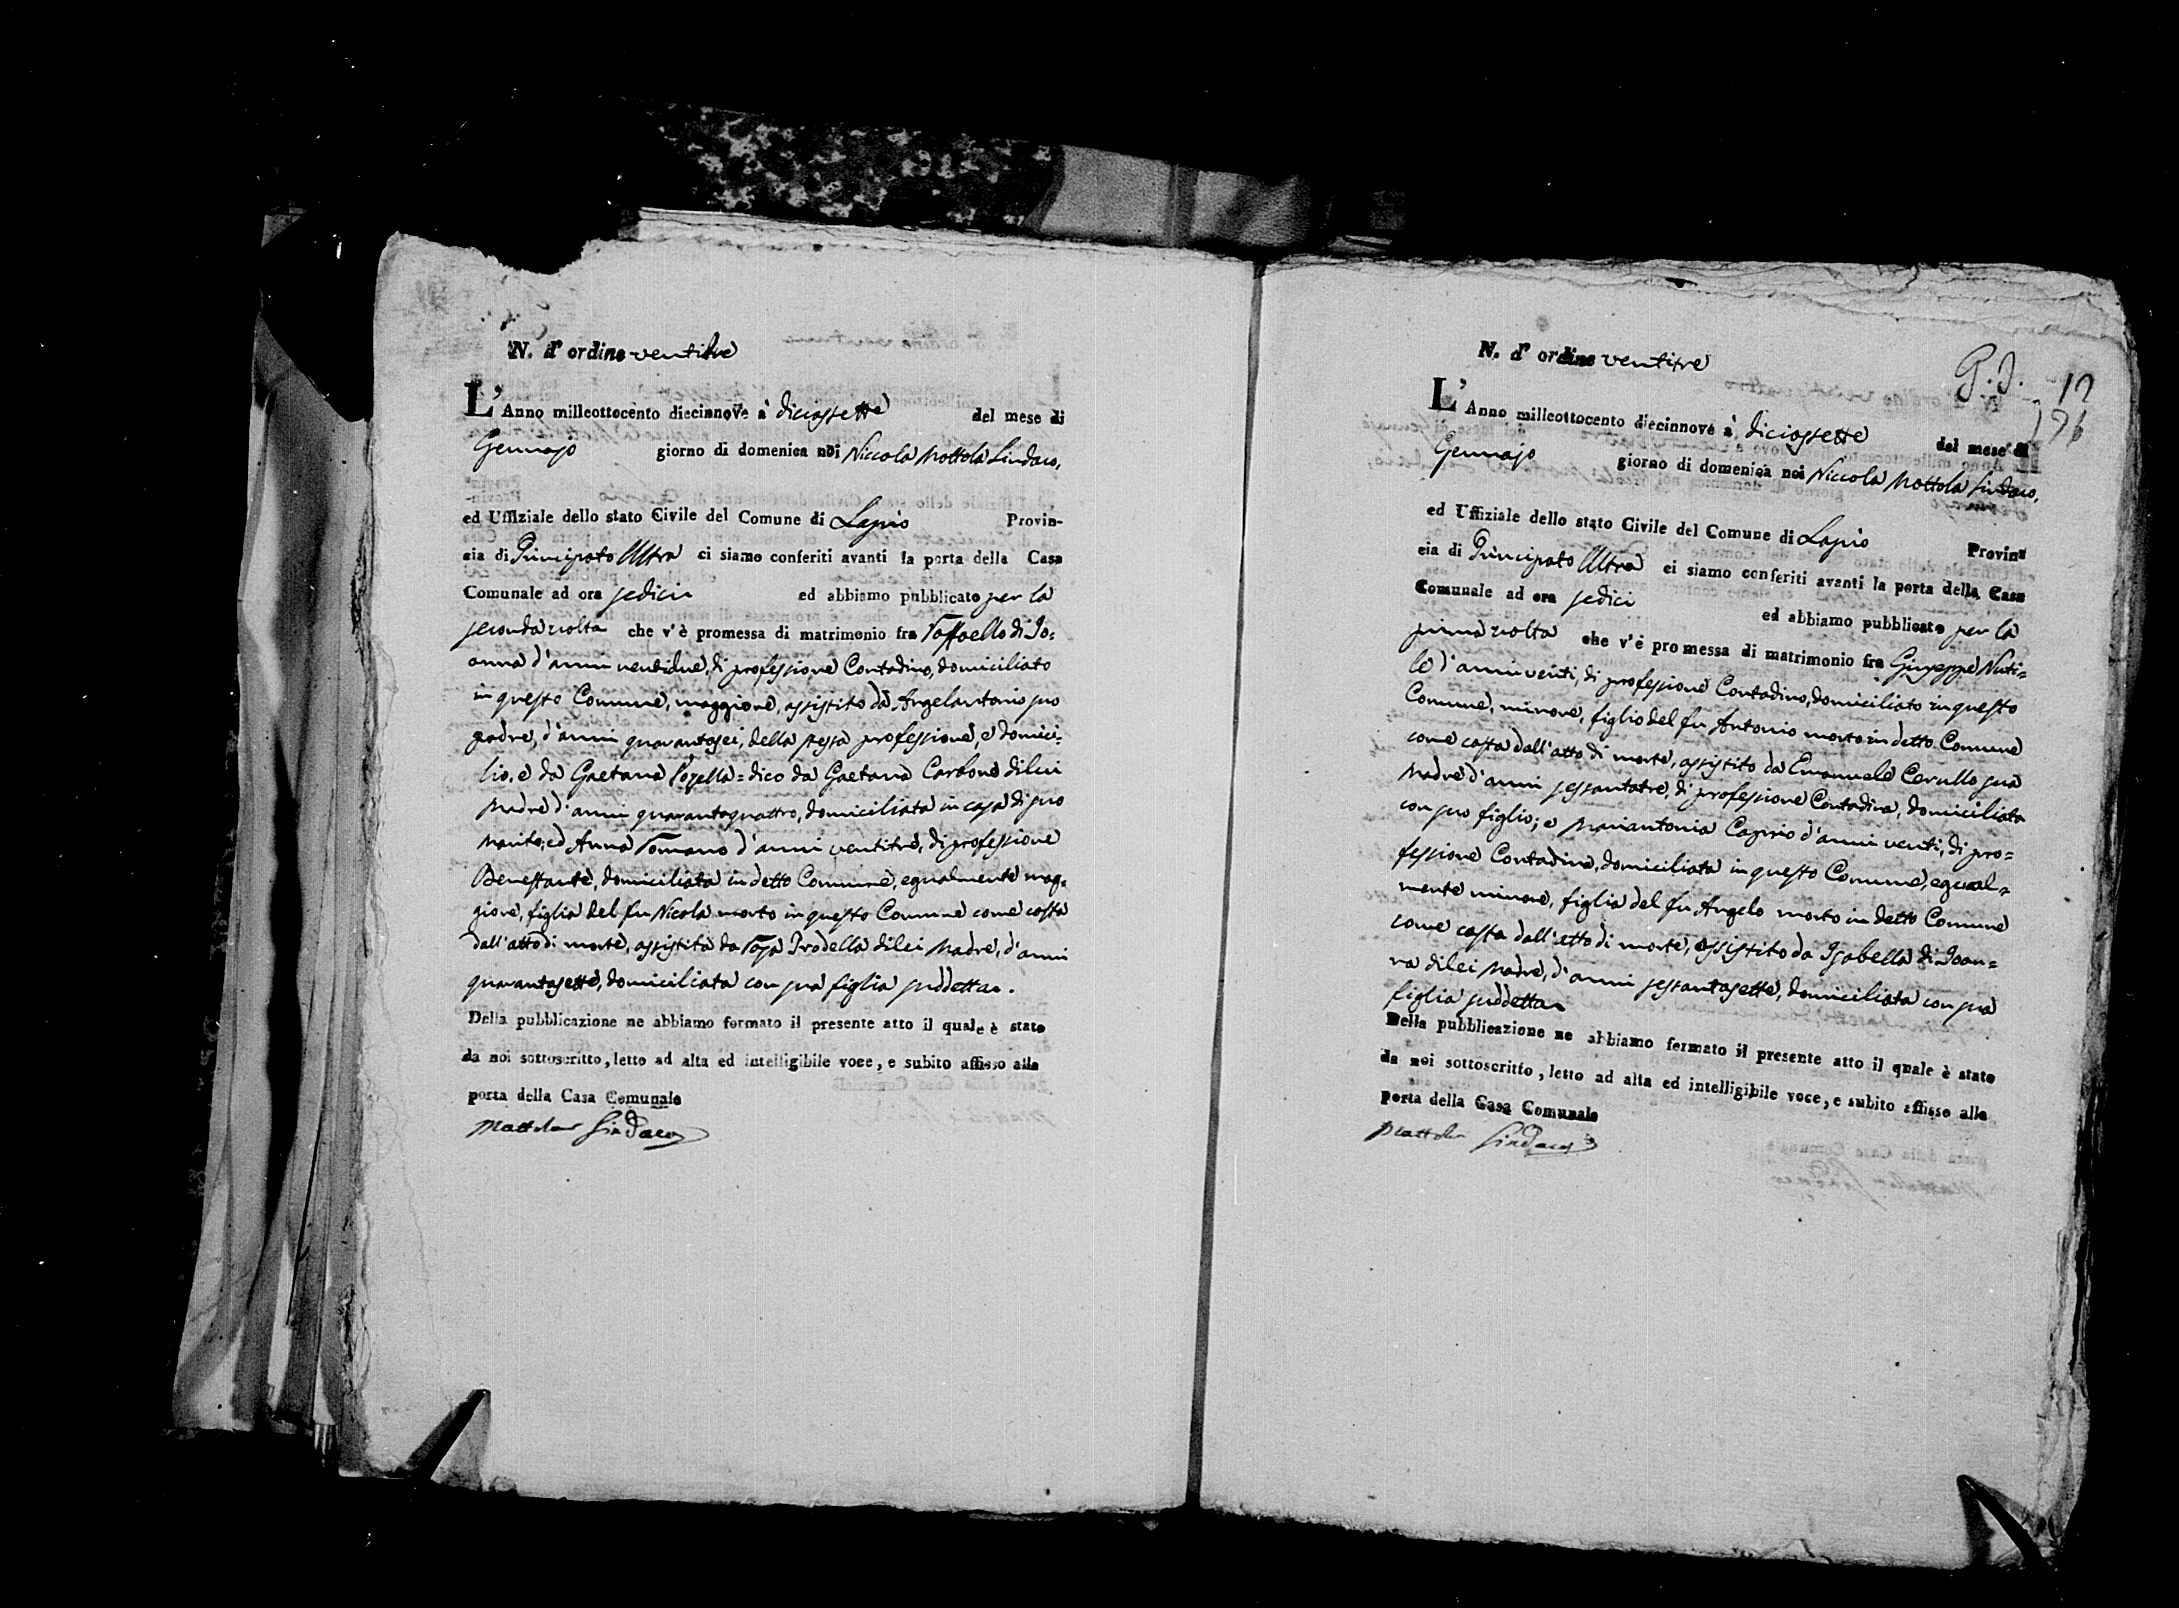 N. d' ordine ventitre
L'Anno milleottocento diecinnove à diciassette del mese di
Gennajo giorno di domenica noi Niccola Mottola Sindaco,
ed Uffiziale dello stato Civile del Comune di Lapio Provin-
cia di Principato Ultra ci siamo conferiti avanti la porta della Casa
Comunale ad ora sedici ed abbiamo pubblicato per la
seconda volta che v'è promessa di matrimonio fra Raffaello di Jo=
anna d'anni ventidue, di professione Contadino, domiciliato
in questo Comune, maggiore, assistito da Angelantonio suo
padre, d'anni quarantasei, della stessa professione, e domici=
lio, e da Gaetana = dico da Gaetana Carbone di lui
Madre d'anni quarantaquattro, domiciliata in casa di suo
Marito; ed Anna Romano d'anni ventitre, di professione
Benestante, domiciliata in detto Comune, egualmente mag=
giore, figlia del fu Nicola morto in questo Comune come costa
dall'atto di morte, assistita da Rosa Trodella di lei Madre, d'anni
quarantasette, domiciliata con sua figlia suddetta.
Della pubblicazione ne abbiamo formato il presente atto il quale è stato
da noi sottoscritto, letto ad alta ed intelligibile voce, e subito affisso alla
porta della Casa Comunale
Mattola Sindaco
N. d' ordine ventitre
12
196
L'Anno milleottocento diecinnove à diciassette del mese di
Gennajo giorno di domenica noi Niccola Mottola Sindaco,
ed Uffiziale dello stato Civile del Comune di Lapio Provin=
cia di Principato Ultra ci siamo conferiti avanti la porta della Casa
Comunale ad ora sedici ed abbiamo pubblicato per la
prima volta che v'è promessa di matrimonio fra Giuseppe Nuti=
le d'anni venti, di professione Contadino, domiciliato in questo
Comune, minore, figlio del fu Antonio morto in detto Comune
come costa dall'atto di morte, assistito da Emanuela Cerullo sua
Madre d'anni sessantatre, di professione Contadina, domiciliata
con suo figlio; e Mariantonia Caprio d'anni venti, di pro=
fessione Contadina, domiciliata in questo Comune, egual=
mente minore, figlia del fu Angelo morto in detto Comune
come costa dall'atto di morte, assistito da Isabella di Joan=
na di lei Madre, d'anni sessantasette, domiciliata con sua
figlia suddetta
Della pubblicazione ne abbiamo formato il presente atto il quale è stato
da noi sottoscritto, letto ad alta ed intelligibile voce, e subito affisso alla
porta della Casa Comunale
Mattola Sindaco